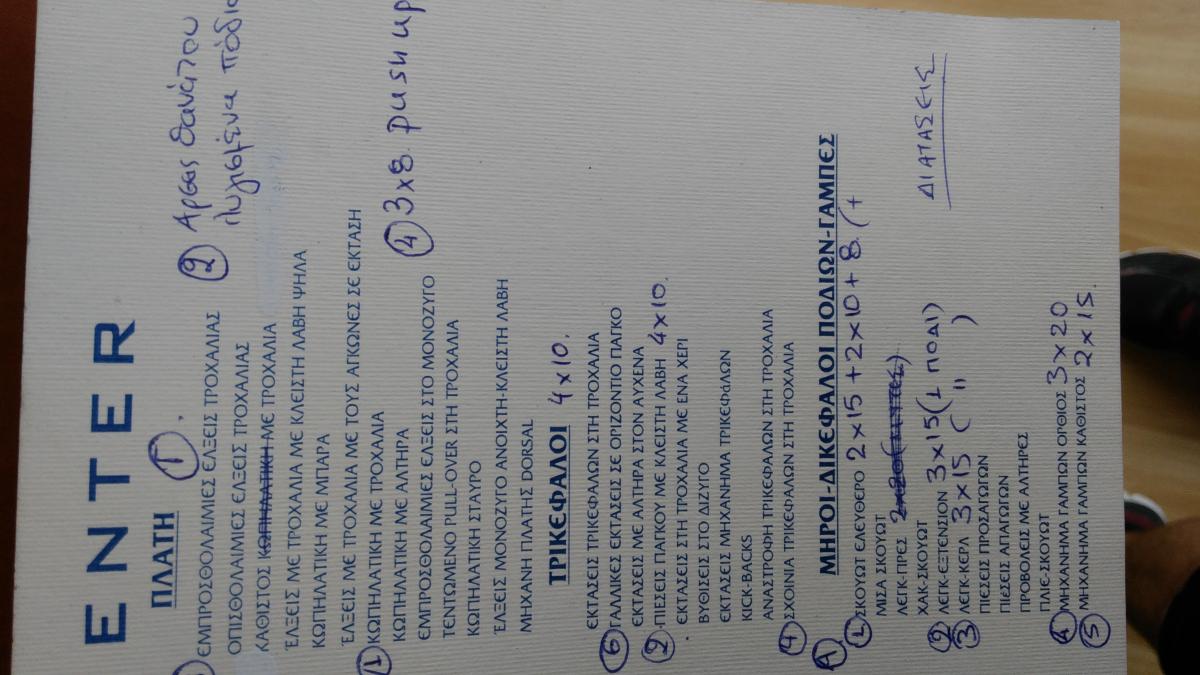 ENTER
ΠΛΑΤΗ ①.
ΕΜΠΡΟΣΘΟΛΑΙΜΙΕΣ ΕΛΞΕΙΣ ΤΡΟΧΑΛΙΑΣ ② Αρσεις θανάτου
ΟΠΙΣΘΟΛΑΙΜΙΕΣ ΕΛΞΕΙΣ ΤΡΟΧΑΛΙΑΣ λυγισμένα πόδια
ΚΑΘΙΣΤΟΣ ΚΩΠΗΛΑΤΙΚΗ ΜΕ ΤΡΟΧΑΛΙΑ
ΈΛΞΕΙΣ ΜΕ ΤΡΟΧΑΛΙΑ ΜΕ ΚΛΕΙΣΤΗ ΛΑΒΗ ΨΗΛΑ
ΚΩΠΗΛΑΤΙΚΗ ΜΕ ΜΠΑΡΑ
ΈΛΞΕΙΣ ΜΕ ΤΡΟΧΑΛΙΑ ΜΕ ΤΟΥΣ ΑΓΚΩΝΕΣ ΣΕ ΕΚΤΑΣΗ
① ΚΩΠΗΛΑΤΙΚΗ ΜΕ ΤΡΟΧΑΛΙΑ
ΚΩΠΗΛΑΤΙΚΗ ΜΕ ΑΛΤΗΡΑ ④ 3x8. push up
ΕΜΠΡΟΣΘΟΛΑΙΜΙΕΣ ΕΛΞΕΙΣ ΣΤΟ ΜΟΝΟΖΥΓΟ
ΤΕΝΤΩΜΕΝΟ PULL-OVER ΣΤΗ ΤΡΟΧΑΛΙΑ
ΚΩΠΗΛΑΤΙΚΗ ΣΤΑΥΡΟ
ΈΛΞΕΙΣ ΜΟΝΟΖΥΓΟ ΑΝΟΙΧΤΗ-ΚΛΕΙΣΤΗ ΛΑΒΗ
ΜΗΧΑΝΗ ΠΛΑΤΗΣ DORSAL
ΤΡΙΚΕΦΑΛΟΙ 4x10.
ΕΚΤΑΣΕΙΣ ΤΡΙΚΕΦΑΛΩΝ ΣΤΗ ΤΡΟΧΑΛΙΑ
⑥ ΓΑΛΛΙΚΕΣ ΕΚΤΑΣΕΙΣ ΣΕ ΟΡΙΖΟΝΤΙΟ ΠΑΓΚΟ
② ΠΙΕΣΕΙΣ ΠΑΓΚΟΥ ΜΕ ΚΛΕΙΣΤΗ ΛΑΒΗ 4x10.
ΕΚΤΑΣΕΙΣ ΜΕ ΑΛΤΗΡΑ ΣΤΟΝ ΑΥΧΕΝΑ
ΕΚΤΑΣΕΙΣ ΣΤΗ ΤΡΟΧΑΛΙΑ ΜΕ ΕΝΑ ΧΕΡΙ
ΒΥΘΙΣΕΙΣ ΣΤΟ ΔΙΖΥΓΟ
ΕΚΤΑΣΕΙΣ ΜΗΧΑΝΗΜΑ ΤΡΙΚΕΦΑΛΩΝ
KICK-BACKS
ΑΝΑΣΤΡΟΦΗ ΤΡΙΚΕΦΑΛΩΝ ΣΤΗ ΤΡΟΧΑΛΙΑ
④ ΣΧΟΙΝΙΑ ΤΡΙΚΕΦΑΛΩΝ ΣΤΗ ΤΡΟΧΑΛΙΑ
Ⓐ ΜΗΡΟΙ-ΔΙΚΕΦΑΛΟΙ ΠΟΔΙΩΝ-ΓΑΜΠΕΣ
① ΣΚΟΥΟΤ ΕΛΕΥΘΕΡΟ 2x15+2x10+8 (+
ΜΙΣΑ ΣΚΟΥΩΤ
ΛΕΓΚ-ΠΡΕΣ
ΧΑΚ-ΣΚΟΥΩΤ
② ΛΕΓΚ-ΕΞΤΕΝΣΙΟΝ 3x15 (1 ΠΟΔΙ)
③ ΛΕΓΚ-ΚΕΡΛ 3x15 ( " )
ΠΙΕΣΕΙΣ ΠΡΟΣΑΓΩΓΩΝ
ΠΙΕΣΕΙΣ ΑΠΑΓΩΓΩΝ
ΠΡΟΒΟΛΕΙΣ ΜΕ ΑΛΤΗΡΕΣ
ΠΛΙΕ-ΣΚΟΥΩΤ
④ ΜΗΧΑΝΗΜΑ ΓΑΜΠΩΝ ΟΡΘΙΟΣ 3x20
⑤ ΜΗΧΑΝΗΜΑ ΓΑΜΠΩΝ ΚΑΘΙΣΤΟΣ 2x15.
ΔΙΑΤΑΣΕΙΣ